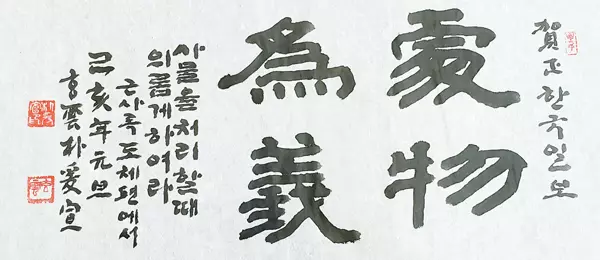 賀正 한국일보
處物
為義
사물을 처리할때
의롭게하여라
근사록 도체편에서
己亥年 元旦
雲 朴 宣